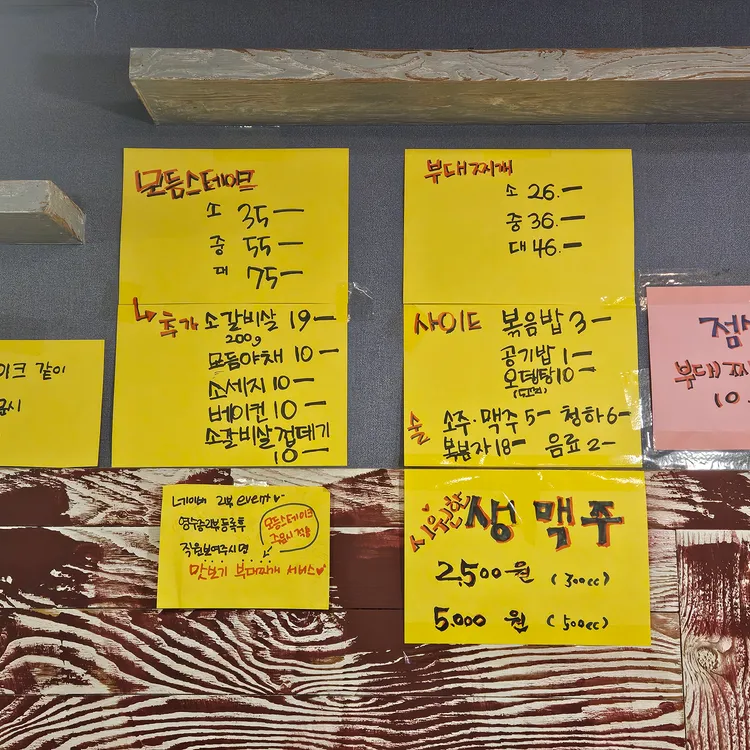 모듬스테이크
소 35-
중 55-
대 75-
↳ 추가 소갈비살 19-
200g
모듬야채 10-
소세지 10-
베이컨 10-
소갈비살껍데기
10-
부대찌개
소 26.-
중 36.-
대 46.-
사이드 볶음밥 3-
공기밥 1-
오뎅탕 10-
술 소주·맥주 5- 청하 6-
복분자 18- 음료 2-
이크 같이
문시
점
부대찌
10.
네이버 리뷰 event♥
영수증리뷰 등록후
직원보여주시면
맛보기 부대찌개 서비스♥
모듬스테이크
주문시 적용
시원한 생맥주
2,500원 (300cc)
5.000 원 (500cc)